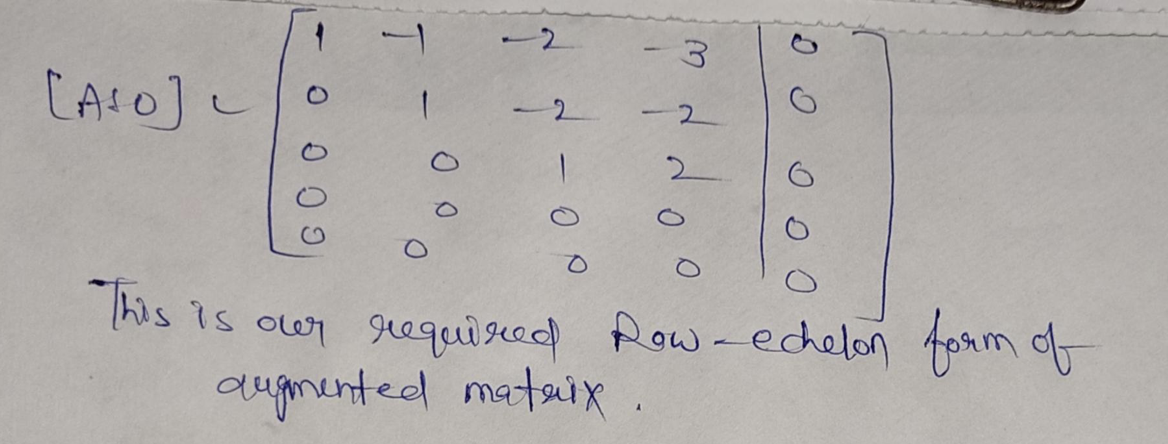 1 -1 -2 -3 0
[A:0] ~ 0 1 -2 -2 0
0 0 1 2 0
0 0 0 0 0
0 0 0 0 0
This is our required Row-echelon form of
augmented matrix.